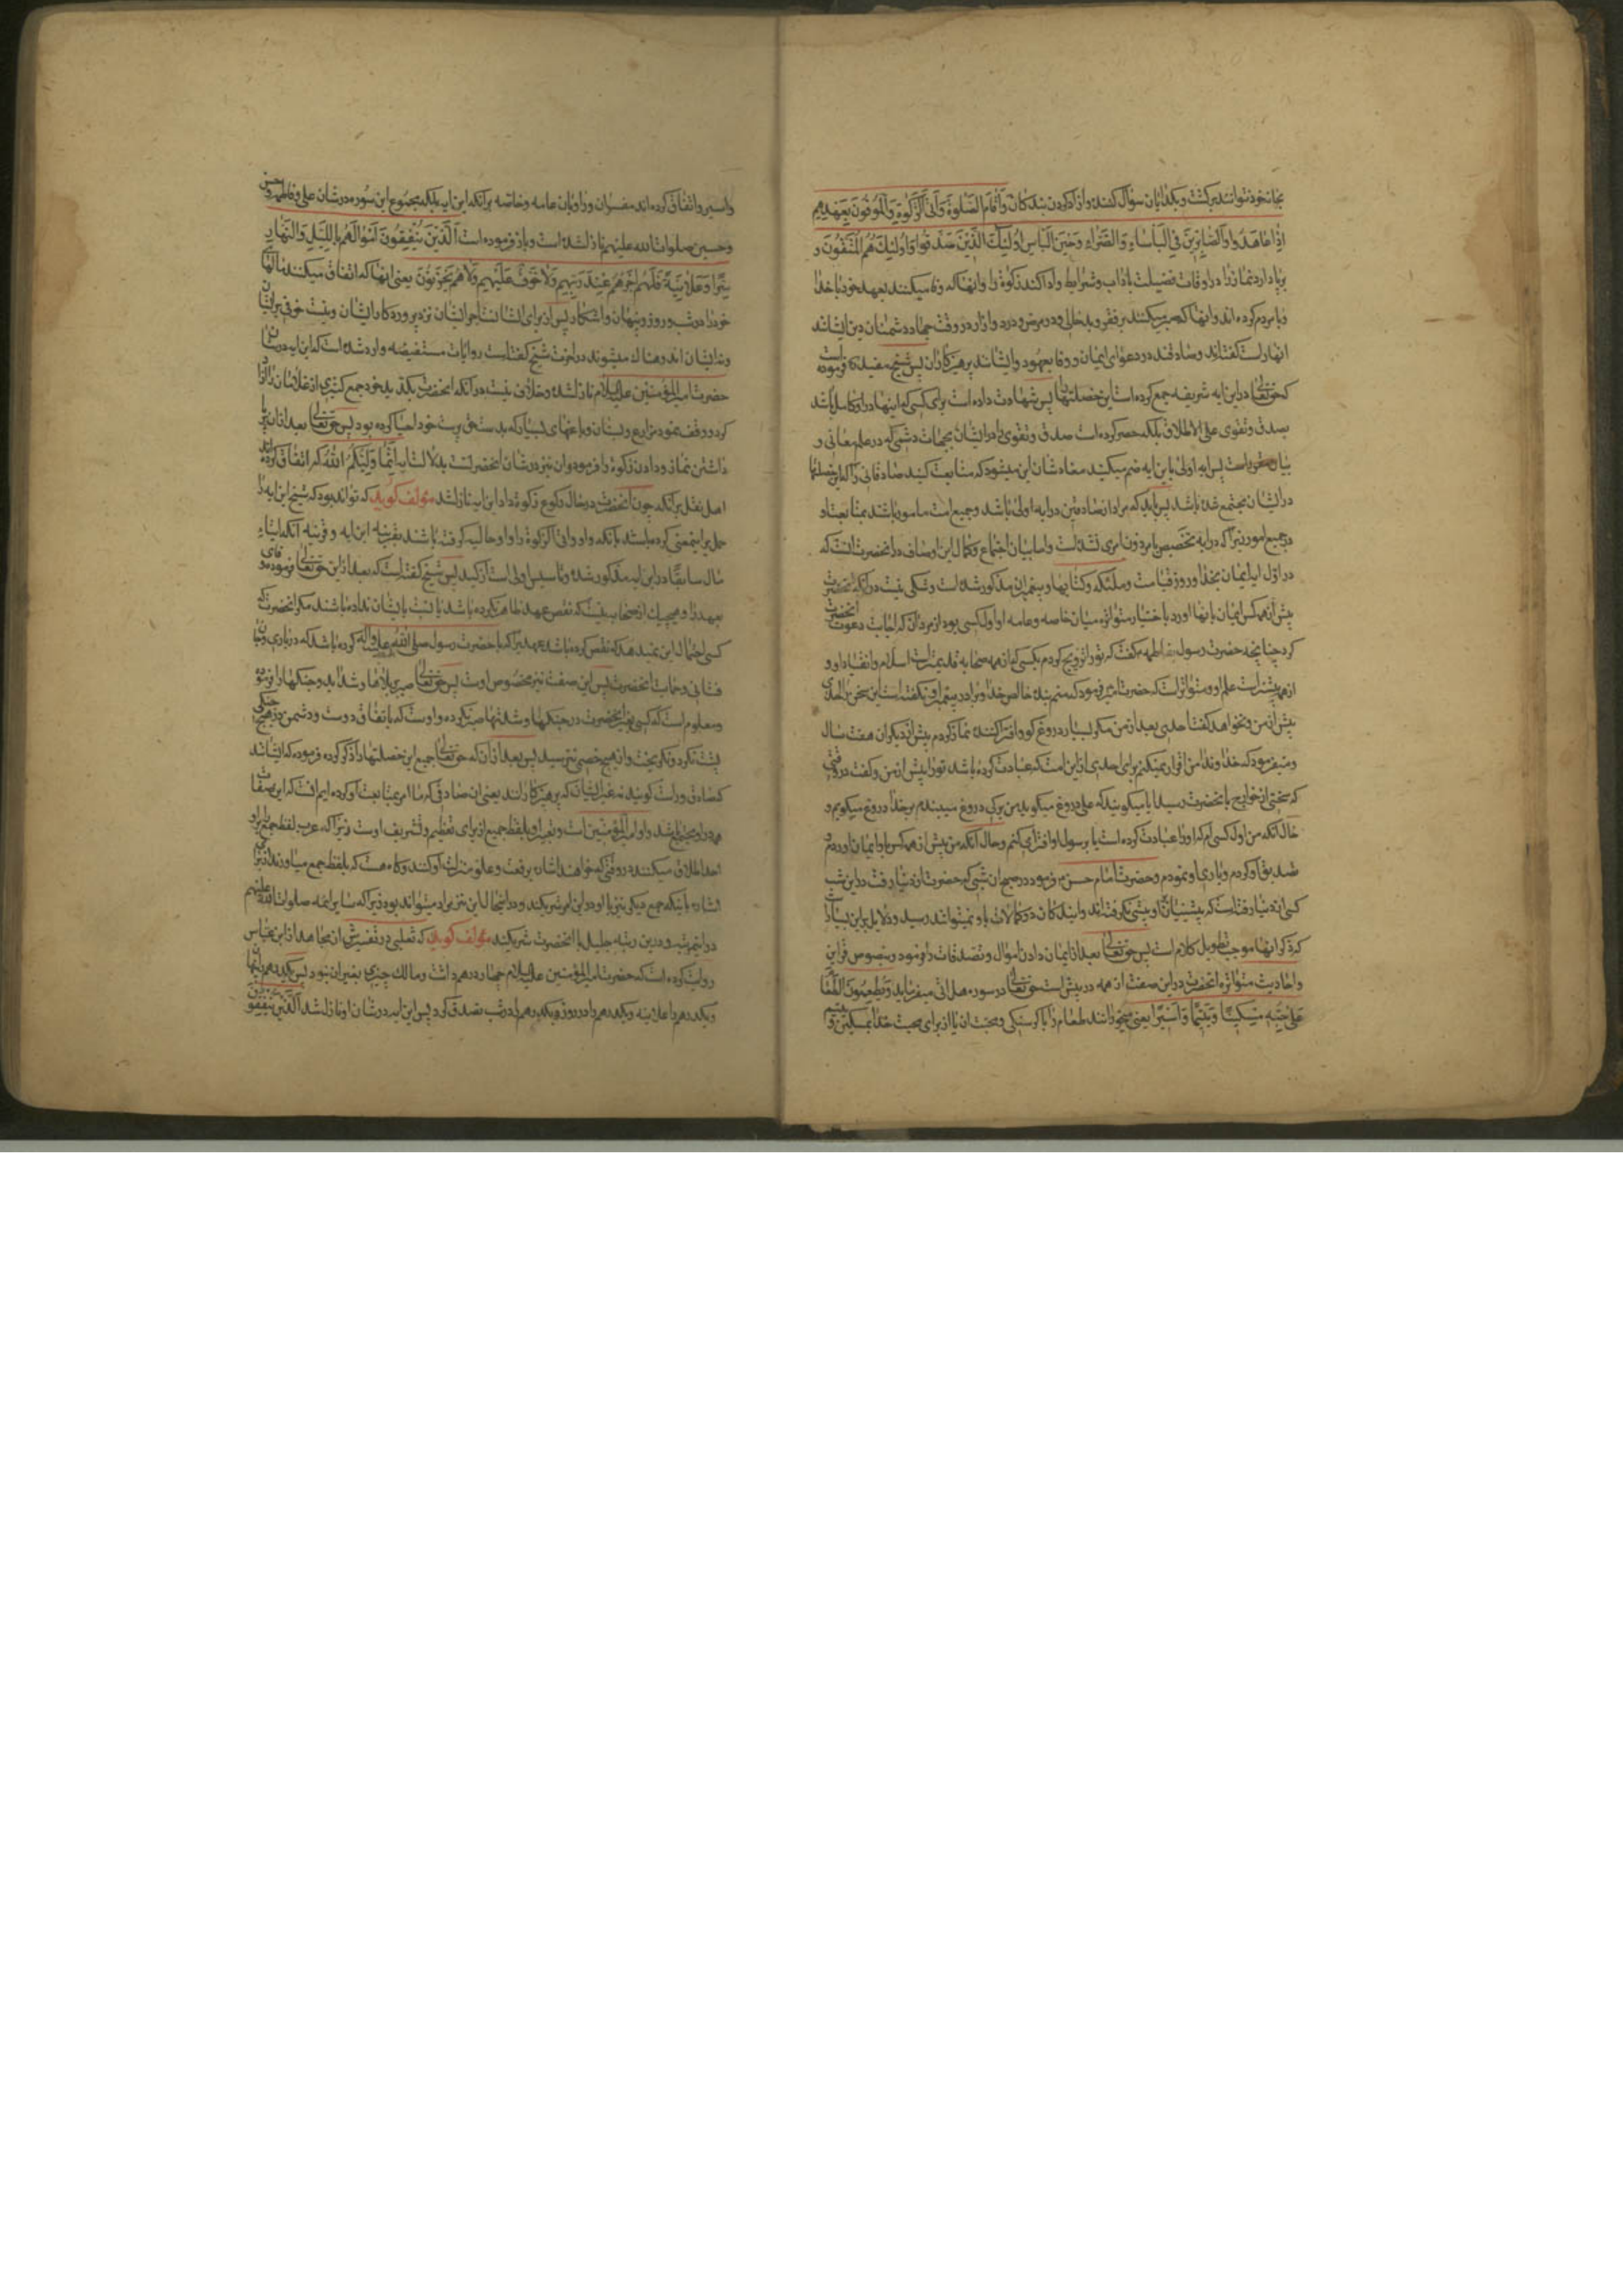 بخانه خود نتوانند برگشت و بگدایان سؤال کنند و از آزاد کردن بندگان وَأَقَامَ الصَّلوةَ وَآتَی الزَّکوةَ وَالْمُوفُونَ بِعَهْدِهِمْ
إِذَا عَاهَدُوا وَالصَّابِرِینَ فِی الْبَأْسَاءِ وَالضَّرَّاءِ وَحِینَ الْبَأْسِ أُولَئِکَ الَّذِینَ صَدَقُوا وَأُولَئِکَ هُمُ الْمُتَّقُونَ و
برپا دارد نماز را در اوقات فضیلت با آداب و شرایط و ادا کند زکوة را و انها که وفا میکنند بعهد خود با خدا
و با مردم کرده اند و انها که صبر میکنند بر فقر و بدحالی و در مرض و درد و ازار و در وقت جهاد دشمنان دین ایشانند
انها راست گفتند و صادقند در دعوای ایمان و وفا بعهود و ایشانند پرهیزکاران پس شیخ مفید فرموده است
که حق تعالی در این ایه شریفه جمع کرده است این خصلتها را پس شهادت داده است برای کسی که اینها در او کامل باشد
بصدق و تقوی علی الاطلاق بلکه حصر کرده است صدق و تقوی را در ایشان بجهات که در علم معانی و
بیان مقرر است پس ایه اولی با این ایه ضم میکنید مفادشان این میشود که متابعت کنید صادقانی را که این خصلتها
در ایشان مجتمع شده باشد پس باید که مراد از صادقین در ایه اولی باشد و جمیع امت مامور باشند بمتابعت او
در جمیع امور زیرا که در ایه تخصیص بامری دون امری نشده است و اما بیان اجتماع و کمال این اوصاف در انحضرت انست که
در اول ایه ایمان بخدا و روز قیامت و ملئکه و کتابها و پیغمبران مذکور شده است و شکی نیست در انکه انحضرت
پیش از همه کس ایمان بانها اورد باخبار متواتره میان خاصه و عامه او اول کسی بود از مردان که اجابت دعوت انحضرت
کرد چنانچه حضرت رسول بفاطمه گفت که تو را تزویج کردم بکسی که از همه صحابه قدیمتر است اسلام و انقیاد او و
از همه بیشتر است علم او و متواتر است که حضرت امیر فرمود که منم بنده خالص خدا و برادر پیغمبر او نگفته است این سخن را احدی
پیش از من و نخواهد گفت احدی بعد از من مگر بسیار دروغ گو و افترا کننده نماز کردم پیش از دیگران هفت سال
و میفرمود که خداوندا من اقرار نمیکنم برای احدی از این امت که عبادت کرده باشد تو را پیش از من و گفت در وقتی
که سخنی از خوارج بانحضرت رسید ایا میگویند که علی دروغ میگوید پس بر کی دروغ میبندم بر خدا دروغ میگویم و
حال انکه من اول کسی ام که او را عبادت کرده است یا بر رسول او افترا می کنم و حال انکه من پیش از همه کس باو ایمان اوردم و
تصدیق او کردم و یاری او نمودم و حضرت امام حسن فرمود در صبح ان شبی که حضرت از دنیا رفت در این شب
کسی از دنیا رفته است که پیشینیان بر او پیشی نگرفته اند و ایندگان در کمالات باو نمیتوانند رسید و دلایل بر این بسیار است
که ذکر انها موجب تطویل کلام است پس حق تعالی بعد از ایمان دادن اموال و تصدقات را فرمود و بنصوص قران
و احادیث متواتره انحضرت در این صفت از همه در پیش است حق تعالی در سوره هل اتی میفرماید وَیُطْعِمُونَ الطَّعَامَ
عَلَی حُبِّهِ مِسْکِینًا وَیَتِیمًا وَأَسِیرًا یعنی میخورانند طعام را با گرسنگی و محبت ان یا از برای محبت خدا بمسکین و یتیم و
و اسیر و اتفاق کرده اند مفسران و راویان عامه و خاصه بر انکه این ایه بلکه مجموع این سوره در شان علی و فاطمه و حسن
و حسین صلوات الله علیهم نازل شده است و باز فرموده است الَّذِینَ یُنْفِقُونَ أَمْوَالَهُمْ بِاللَّیْلِ وَالنَّهَارِ
سِرًّا وَعَلَانِیَةً فَلَهُمْ أَجْرُهُمْ عِنْدَ رَبِّهِمْ وَلَا خَوْفٌ عَلَیْهِمْ وَلَا هُمْ یَحْزَنُونَ یعنی انها که انفاق میکنند مالهای
خود را در شب و روز و پنهان و اشکار پس از برای ایشانست اجر ایشان نزد پروردگار ایشان و نیست خوفی بر ایشان
و نه ایشان اندوهناک میشوند در اخرت شیخ گفته است روایات مستفیضه وارد شده است که این ایه در شان
حضرت امیر المؤمنین علیه السلام نازل شده و خلافی نیست در انکه انحضرت بکد ید خود جمع کثیری از غلامان را ازاد
کرد و وقف نمود مزارع و بستان و باغهای بسیار که بدست حق پرست خود احیا کرده بود پس حق تعالی بعد از ان برپا
داشتن نماز و دادن زکوة را فرمود و ان نیز در شان انحضرتست بدلالت ایه إِنَّمَا وَلِیُّکُمُ اللهُ که اتفاق کرده اند
اهل نقل بر انکه چون انحضرت در حال رکوع زکوة داد این ایه نازل شد مؤلف گوید که تواند بود که شیخ این ایه را
حمل بر این معنی کرده باشد بانکه واو واتی الزکوة را واو حالیه گرفته باشند بقرینه این ایه و قرینه انکه ایتاء
مال سابقا در این ایه مذکور شده و تاسیس اولی است از تاکید پس شیخ گفته است که بعد از این حق تعالی فرموده وفای
بعهد را و هیچیک از صحابه نیست که نقض عهد ظاهر نکرده باشد یا نسبت بایشان نداده باشند مگر انحضرت که
کسی احتمال این نمیدهد که نقض کرده باشد عهدی را که با حضرت رسول صلی الله علیه و اله کرده باشد که در یاری و جان
فشانی و حمایت انحضرت پس این صفت نیز مخصوص اوست پس حق تعالی صبر بر بلاها و شداید و جنگها را فرموده
و معلوم است که کسی بغیر انحضرت در جنگها و شدتها صبر نکرده و اوست که باتفاق دوست و دشمن در هیچ جنگی
پشت نکرد و نگریخت و از هیچ خصمی نترسید پس بعد از ان که حق تعالی جمیع این خصلتها را ذکر کرده فرموده که ایشانند
که صادق و راست گویند نه غیر ایشان که پرهیزکارانند یعنی ان صادقی که ما امر بمتابعت او کرده ایم انست که این صفات
همه در او مجتمع باشد و او امیر المؤمنین است و تعبیر از او بلفظ جمیع از برای تعظیم و تشریف اوست زیرا که عرب لفظ جمع را بر
احد اطلاق میکنند در وقتی که خواهند اشاره برفعت و علو منزلت او کنند و گاه هست که بلفظ جمع میاورند از برای
اشاره باینکه جمع دیگر نیز با او در این امر شریکند و در اینجا این نیز مراد میتواند بود زیرا که سایر ائمه صلوات الله علیهم
در این مرتبه و در این رتبه جلیل با انحضرت شریکند مؤلف گوید که ثعلبی در تفسیرش از مجاهد از ابن عباس
روایت کرده است که حضرت امیر المؤمنین علیه السلام چهار درهم داشت و مالک چیزی بغیر ان نبود پس یکدرهم پنهان
و یکدرهم را علانیه و یکدرهم را در روز و یکدرهم را در شب تصدق کرد پس این ایه در شان او نازل شد الَّذِینَ یُنْفِقُونَ